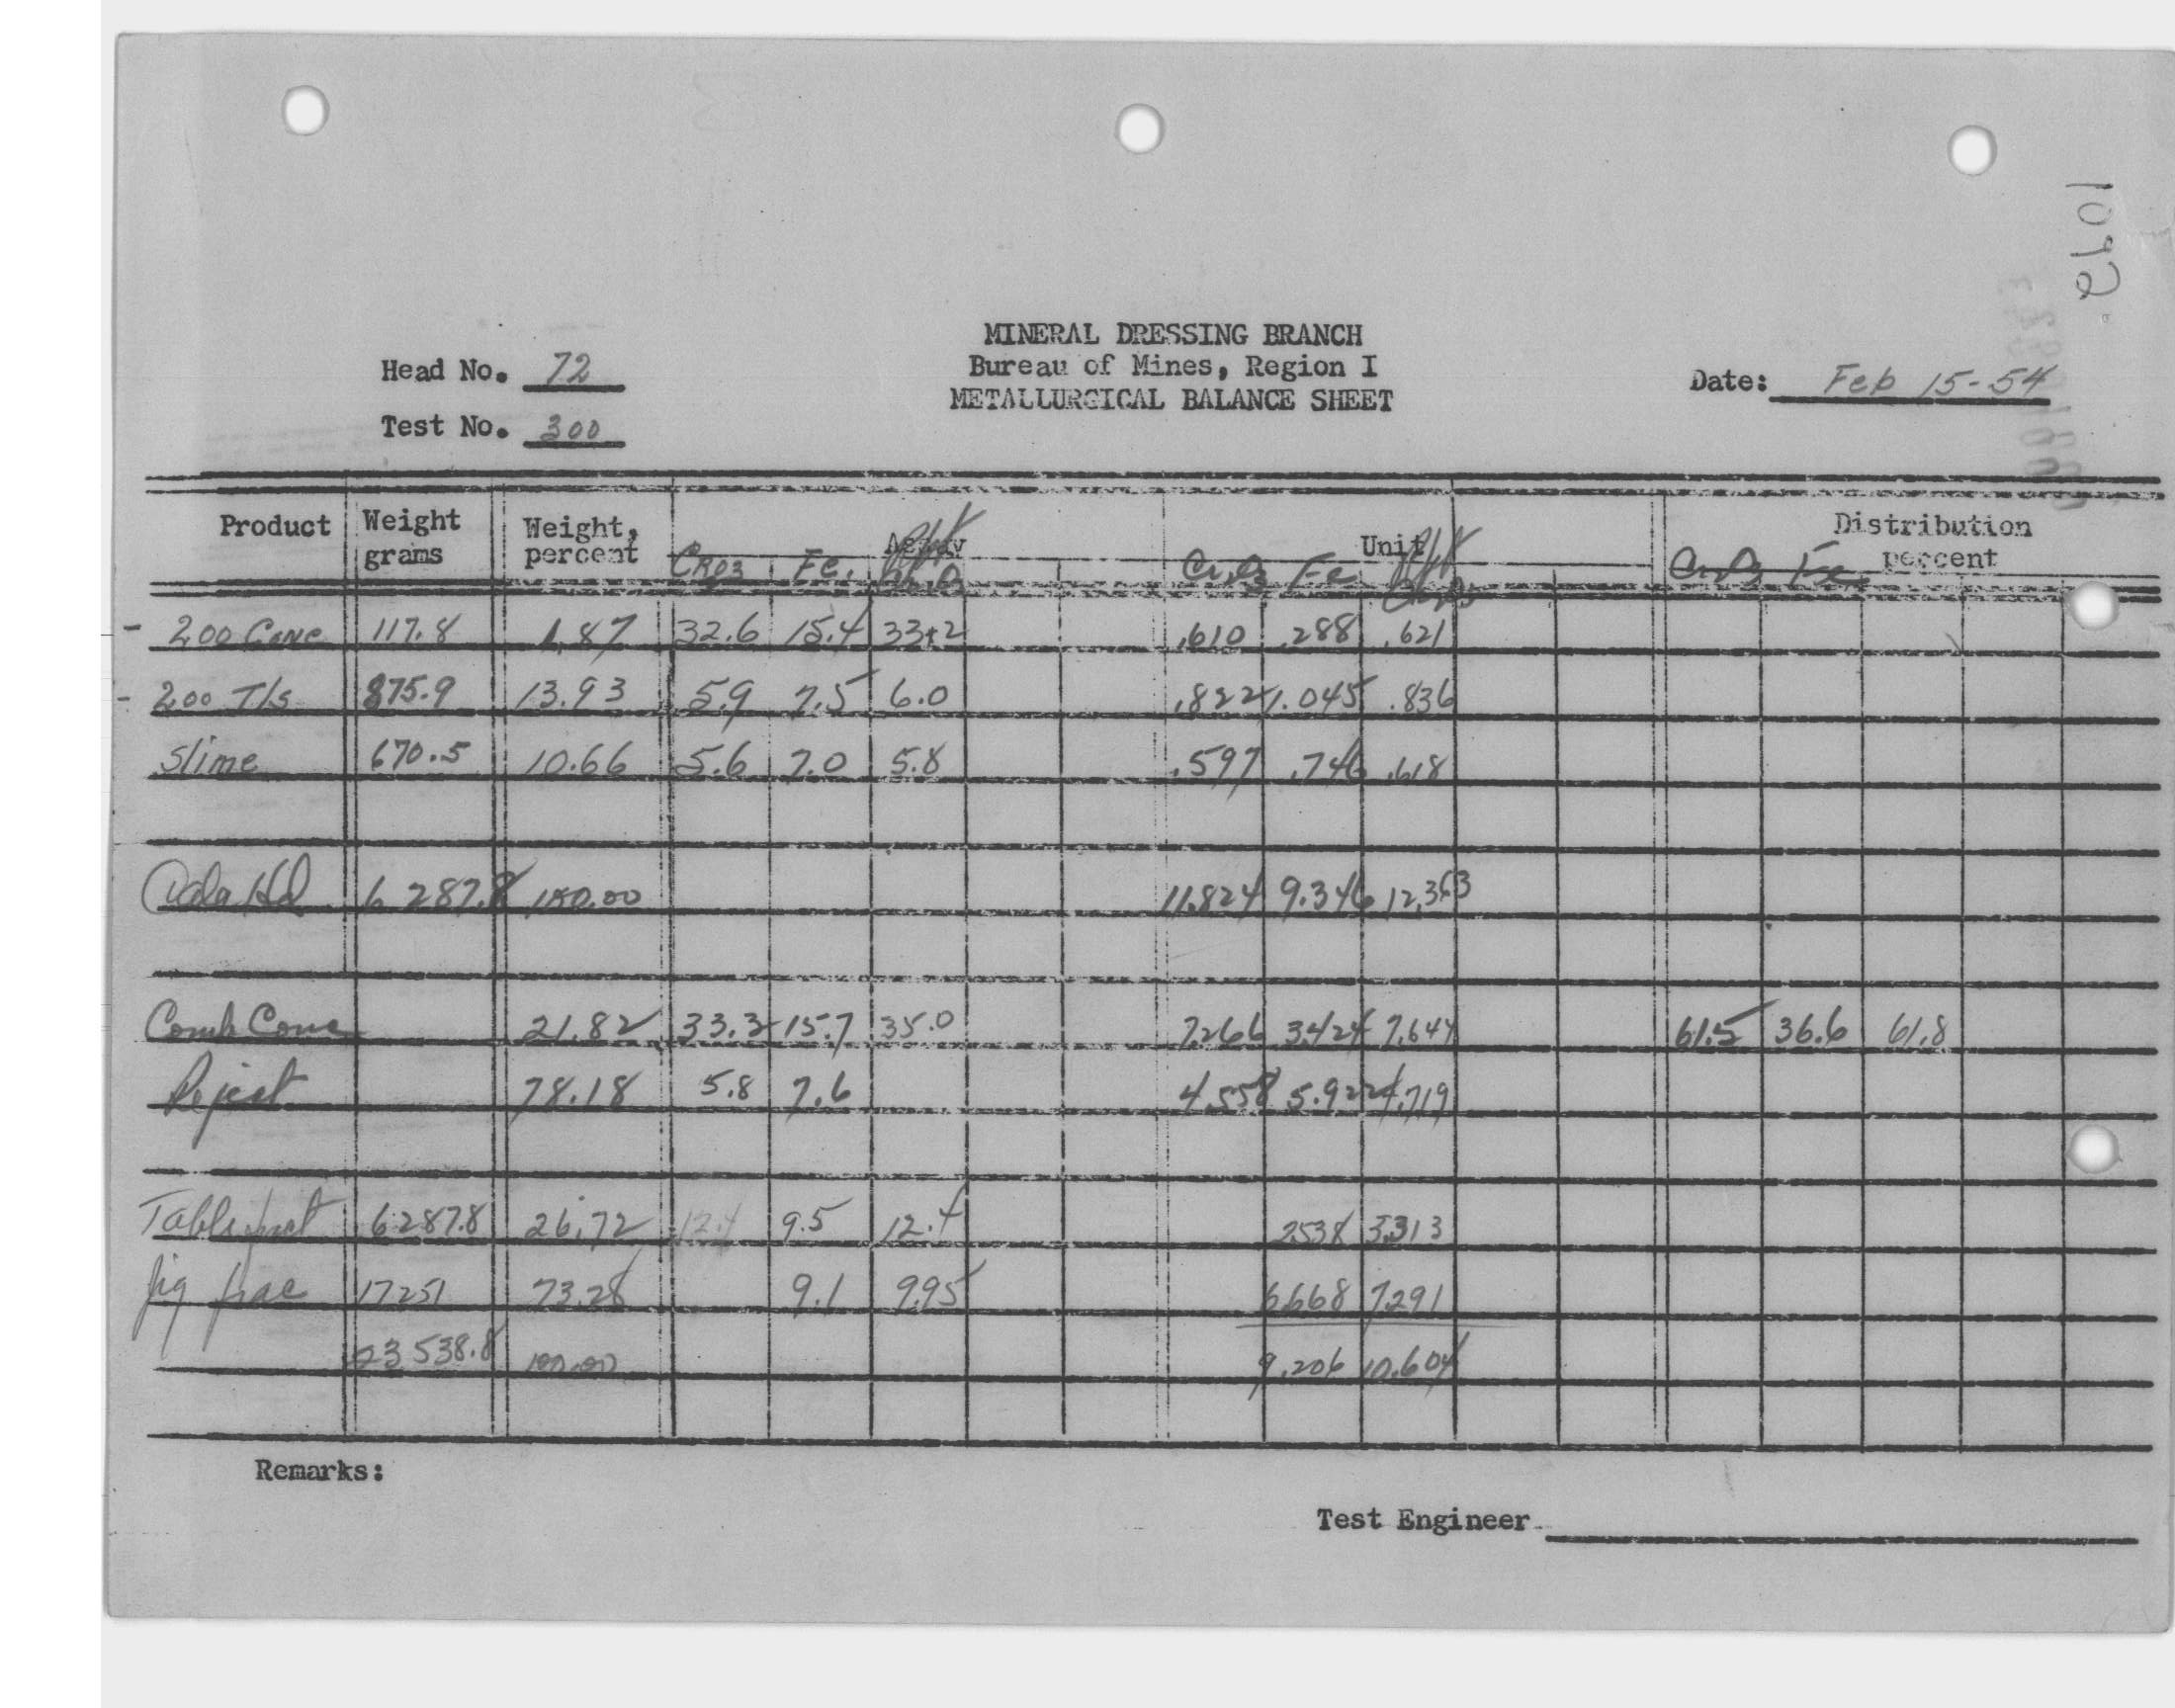 1092
MINERAL DRESSING BRANCH
Head No. 72 Bureau of Mines, Region I Date: Feb 15-54
METALLURGICAL BALANCE SHEET
Test No. 300
Product Weight grams Weight, percent Assay Unit Distribution percent
CrO3 Fe. Cr2O3 Fe Cr2O3 Fe
-200 Conc 117.8 1.87 32.6 15.4 33.2 .610 .288 .621
-200 Tls 875.9 13.93 5.9 7.5 6.0 .822 1.045 .836
Slime 670.5 10.66 5.6 7.0 5.8 .597 .746 .618
Calc Hd 6287.8 100.00 11.824 9.346 12.363
Comb Conc 21.82 33.3 15.7 35.0 7.266 3.424 7.644 61.5 36.6 61.8
Reject 78.18 5.8 7.6 4.558 5.922 4.719
Table fract 6287.8 26.72 12.4 9.5 12.4 2538 3.313
Jig frac 17251 73.28 9.1 9.95 6.668 7.291
23538.8 100.00 9.206 10.604
Remarks:
Test Engineer